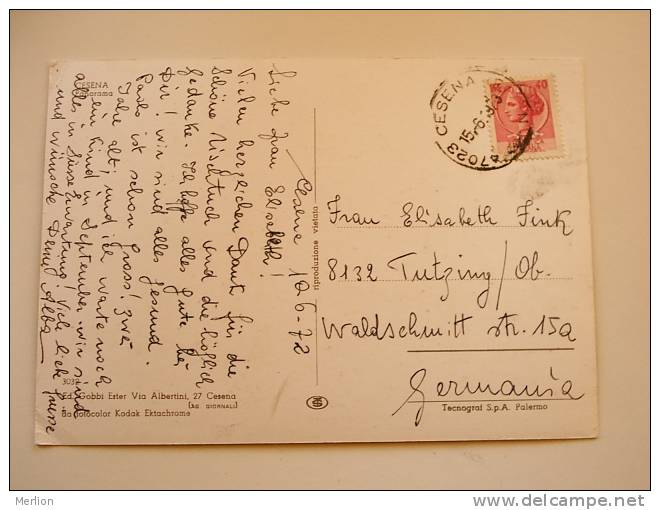 CESENA
Panorama
Cesena 10-6-72
Liebe Frau Elisabeth!
Vielen herzlichen Dank für die
schöne Tischtuch und die
Gedanke. Ich hoffe alles gute bei
Dir! wir sind alles gesund.
Paolo ist schon gross! zwei
Jahre alt; und ich warte noch
ein Kind in September wir sind
alles in Erwartung! Viele liebe Grüsse
und wünsche Deine Alba
3032
Ed. Gobbi Ester Via Albertini, 27 Cesena
(AG GIORNALI)
da fotocolor Kodak Ektachrome
riproduzione vietata
CESENA
15-6
47023
40
Frau Elisabeth Fink
8132 Tutzing/Ob.
Waldschmitt str. 15a
Germania
Tecnograf S.p.A. Palermo
Merlion
http://www.delcampe.net